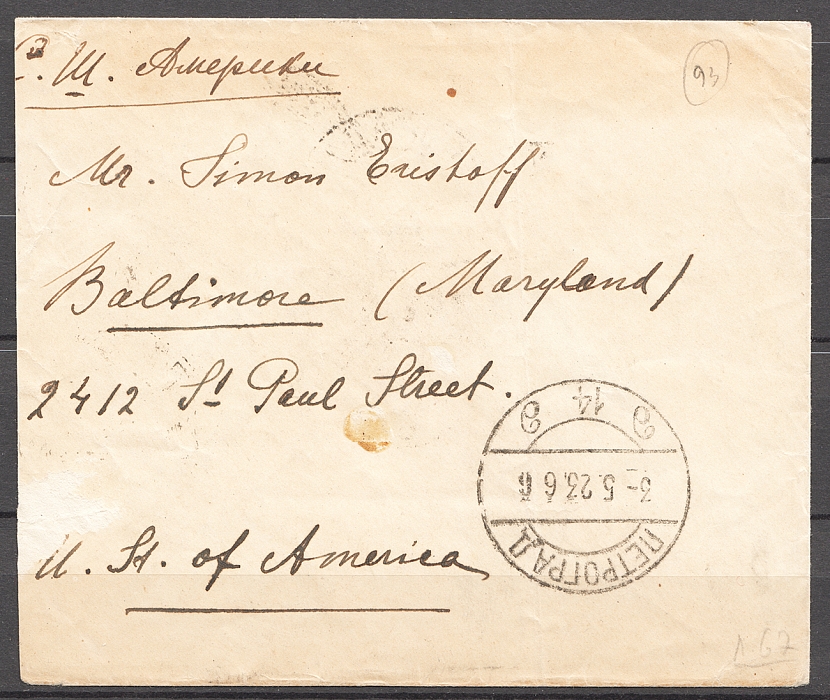 С. Ш. Америки
93
Mr. Simon Eristoff
Baltimore (Maryland)
2412 St Paul Street.
U. St. of America
ПЕТРОГРАД
3-5.23.6
э 14 э
1.67